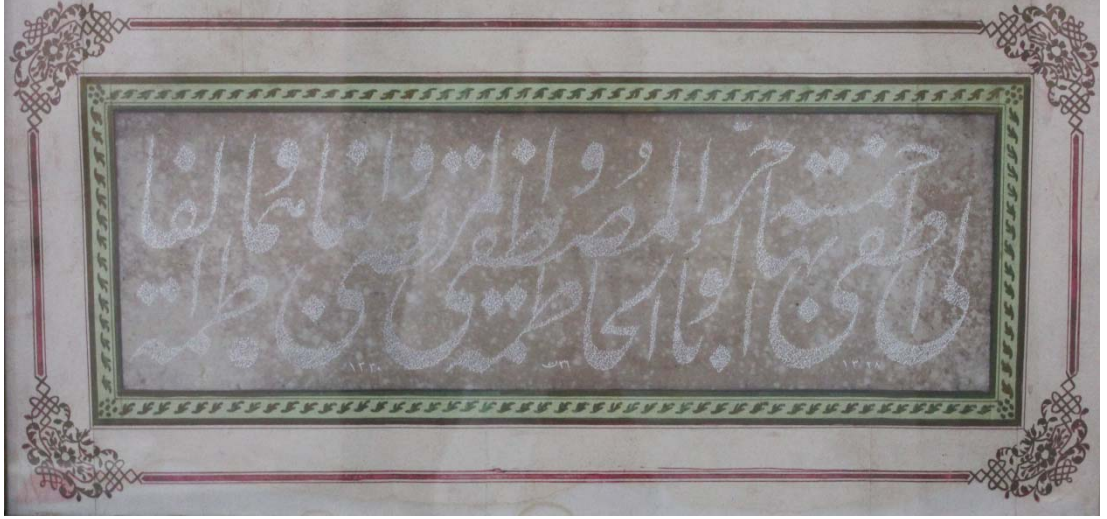 لی خمسة اطفی بها حر الوباء الحاطمة
المصطفی و المرتضی و ابناهما و الفاطمة